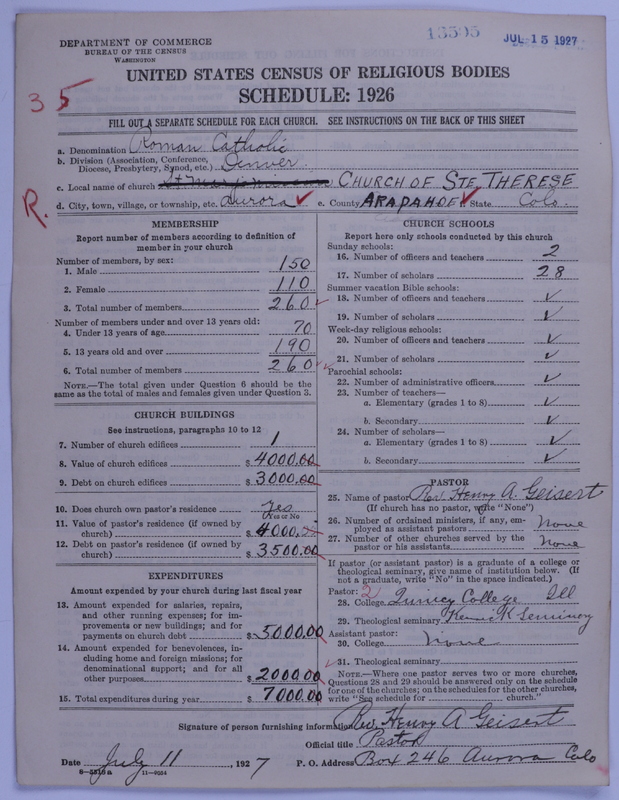 13595
JUL 15 1927
DEPARTMENT OF COMMERCE
BUREAU OF THE CENSUS
WASHINGTON
UNITED STATES CENSUS OF RELIGIOUS BODIES
SCHEDULE: 1926
35
FILL OUT A SEPARATE SCHEDULE FOR EACH CHURCH. SEE INSTRUCTIONS ON THE BACK OF THIS SHEET
a. Denomination Roman Catholic
b. Division (Association, Conference,
Diocese, Presbytery, Synod, etc.) Denver
c. Local name of church CHURCH OF STE. THERESE
R.
d. City, town, village, or township, etc. Aurora ✓ e. County ARAPAHOE ✓ f. State Colo.
MEMBERSHIP
Report number of members according to definition of
member in your church
Number of members, by sex:
1. Male 150
2. Female 110
3. Total number of members 260 ✓
Number of members under and over 13 years old:
4. Under 13 years of age 70
5. 13 years old and over 190
6. Total number of members 260 ✓
NOTE.—The total given under Question 6 should be
same as the total of males and females given under Question 3.
CHURCH BUILDINGS
See instructions, paragraphs 10 to 12
7. Number of church edifices 1
8. Value of church edifices $4000.00
9. Debt on church edifices $3000.00
10. Does church own pastor's residence Yes
Yes or No
11. Value of pastor's residence (if owned by
church) $4000.00
12. Debt on pastor's residence (if owned by
church) $3500.00
EXPENDITURES
Amount expended by your church during last fiscal year
13. Amount expended for salaries, repairs,
and other running expenses; for im-
provements or new buildings; and for
payments on church debt $5000.00
14. Amount expended for benevolences, in-
cluding home and foreign missions; for
denominational support; and for all
other purposes $2000.00
15. Total expenditures during year $7000.00
CHURCH SCHOOLS
Report here only schools conducted by this church
Sunday schools:
16. Number of officers and teachers 2
17. Number of scholars 28
Summer vacation Bible schools:
18. Number of officers and teachers ✓
19. Number of scholars ✓
Week-day religious schools:
20. Number of officers and teachers ✓
21. Number of scholars ✓
Parochial schools:
22. Number of administrative officers ✓
23. Number of teachers—
a. Elementary (grades 1 to 8) ✓
b. Secondary ✓
24. Number of scholars—
a. Elementary (grades 1 to 8) ✓
b. Secondary ✓
PASTOR
25. Name of pastor Rev. Henry A. Geisert
(If church has no pastor, write "None")
26. Number of ordained ministers, if any, em-
ployed as assistant pastors None
27. Number of other churches served by the
pastor or his assistants None
If pastor (or assistant pastor) is a graduate of a college or
theological seminary, give name of institution below. (If
not a graduate, write "No" in the space indicated.)
Pastor: 2
28. College Quincy College Ill
29. Theological seminary Kenrick Seminary
Assistant pastor:
30. College None
31. Theological seminary
NOTE.—Where one pastor serves two or more churches,
Questions 28 and 29 should be answered only on the schedule
for one of the churches; on the schedules for the other churches,
write "See schedule for church."
Signature of person furnishing information Rev. Henry A Geisert
Official title Pastor
Date July 11, 1927 P. O. Address Box 246 Aurora Colo
11—9524